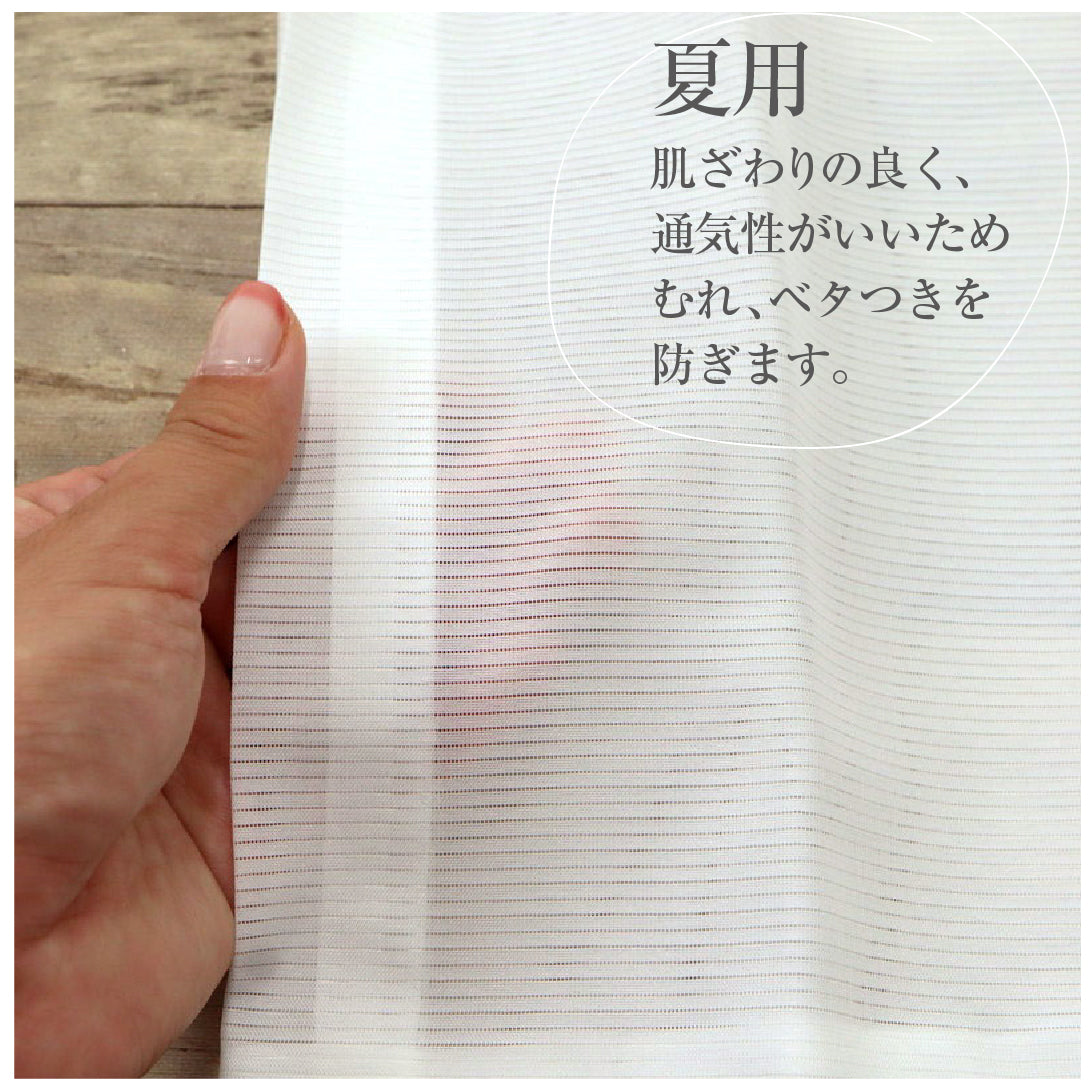 夏用
肌ざわりの良く、
通気性がいいため
むれ、ベタつきを
防ぎます。